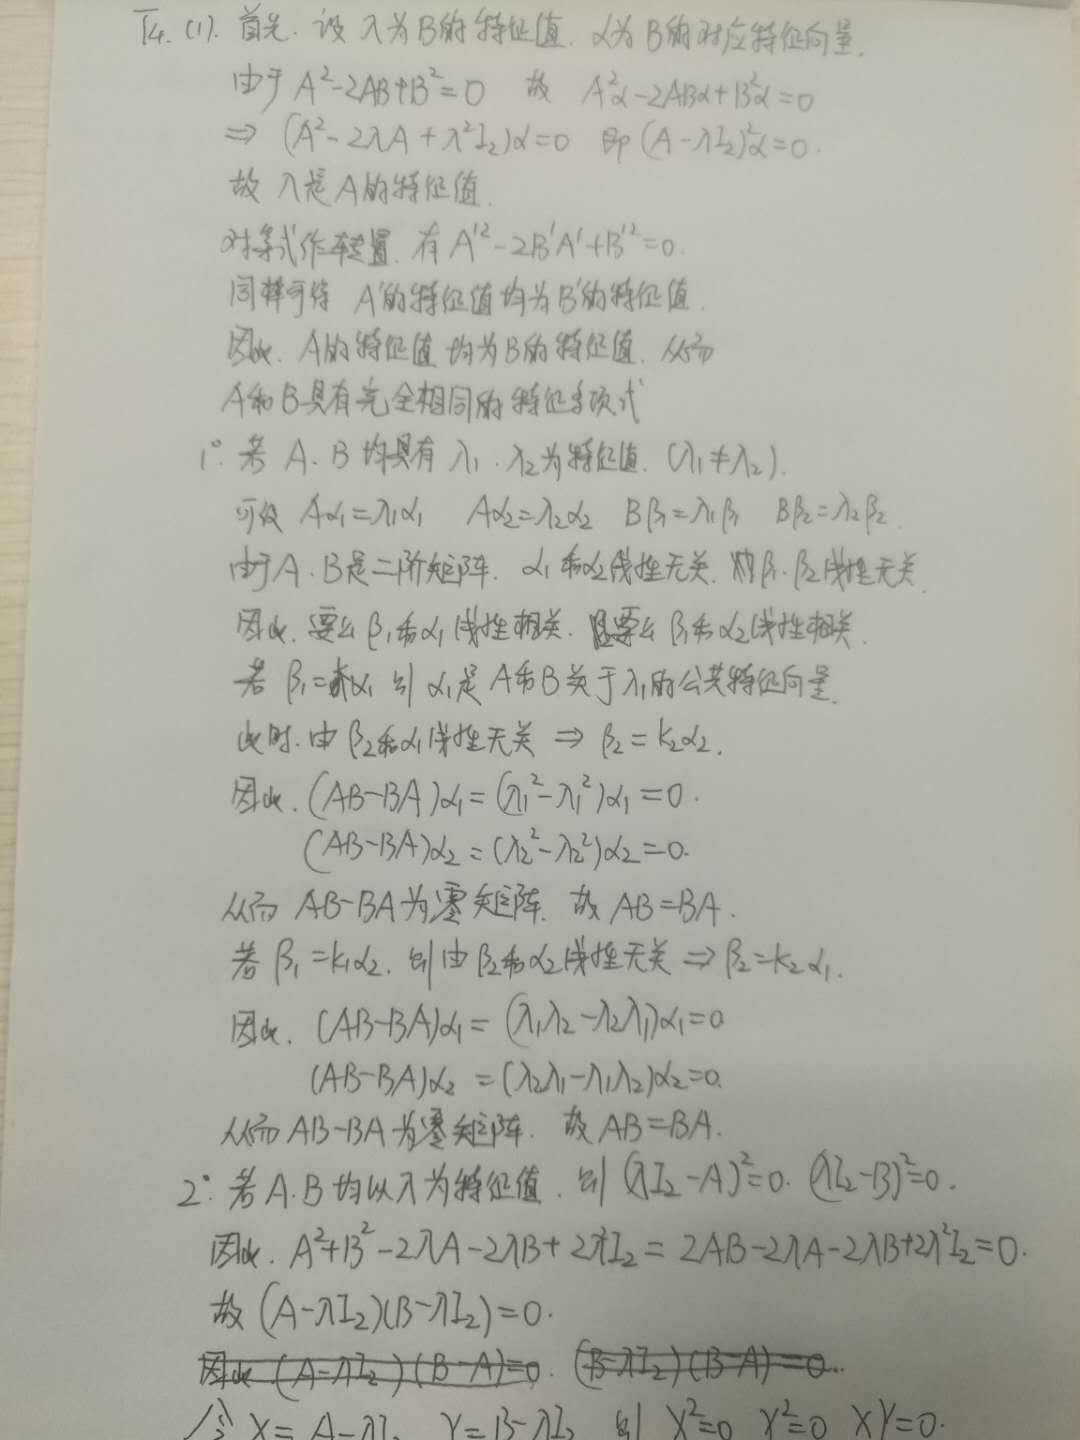 14. (1). 首先. 设 λ为B的特征值. α为B的对应特征向量.
由于 A²-2AB+B²=0 故 A²α-2ABα+B²α=0
⇒ (A²-2λA+λ²I₂)α=0 即 (A-λI₂)²α=0.
故 λ是A的特征值.
对等式作转置. 有 A'²-2B'A'+B'²=0.
同样可得 A'的特征值均为B'的特征值.
因此. A的特征值均为B的特征值. 从而
A和B具有完全相同的特征多项式
1°. 若 A.B 均具有 λ₁.λ₂为特征值. (λ₁≠λ₂).
可设 Aα₁=λ₁α₁ Aα₂=λ₂α₂ Bβ₁=λ₁β₁ Bβ₂=λ₂β₂.
由于A.B是二阶矩阵. α₁和α₂线性无关. β₁.β₂线性无关.
因此. 要么β₁和α₁线性相关. 要么β₁和α₂线性相关.
若 β₁=α₁ 则 α₁是A和B关于λ₁的公共特征向量.
此时. 由β₂和α₁线性无关 ⇒ β₂=k₂α₂.
因此. (AB-BA)α₁=(λ₁²-λ₁²)α₁=0.
(AB-BA)α₂=(λ₂²-λ₂²)α₂=0.
从而 AB-BA为零矩阵. 故 AB=BA.
若 β₁=k₁α₂. 则由β₂和α₂线性无关 ⇒ β₂=k₂α₁.
因此. (AB-BA)α₁=(λ₁λ₂-λ₂λ₁)α₁=0
(AB-BA)α₂=(λ₂λ₁-λ₁λ₂)α₂=0.
从而 AB-BA为零矩阵. 故 AB=BA.
2°. 若A.B均以λ为特征值. 则 (λI₂-A)²=0. (λI₂-B)²=0.
因此. A²+B²-2λA-2λB+2λ²I₂=2AB-2λA-2λB+2λ²I₂=0.
故 (A-λI₂)(B-λI₂)=0.
因此 (A-λI₂)(B-A)=0. (B-λI₂)(B-A)=0.
令 X=A-λI₂ Y=B-λI₂ 则 X²=0 Y²=0 XY=0.